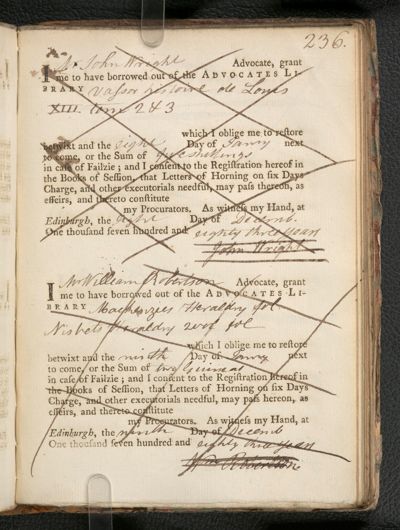 236.
I Mr John Wright Advocate, grant
me to have borrowed out of the ADVOCATES LI-
BRARY Vassor histoire de Louis
XIII. tom 2 & 3
which I oblige me to restore
betwixt and the eight Day of Janry next
to come, or the Sum of five shillings
in case of Failzie; and I consent to the Registration hereof in
the Books of Session, that Letters of Horning on six Days
Charge, and other executorials needful, may pass thereon, as
effeirs, and thereto constitute
my Procurators. As witness my Hand, at
Edinburgh, the eight Day of Decemb.
One thousand seven hundred and eighty three years
John Wright
I Mr William Robertson Advocate, grant
me to have borrowed out of the ADVOCATES LI-
BRARY Mackenzies Heraldry fol
Nisbets heraldry fol
which I oblige me to restore
betwixt and the ninth Day of Janry next
to come, or the Sum of two Guineas
in case of Failzie; and I consent to the Registration hereof in
the Books of Session, that Letters of Horning on six Days
Charge, and other executorials needful, may pass hereon, as
effeirs, and thereto constitute
my Procurators. As witness my Hand, at
Edinburgh, the ninth Day of Decemb
One thousand seven hundred and eighty three years
Wm Robertson